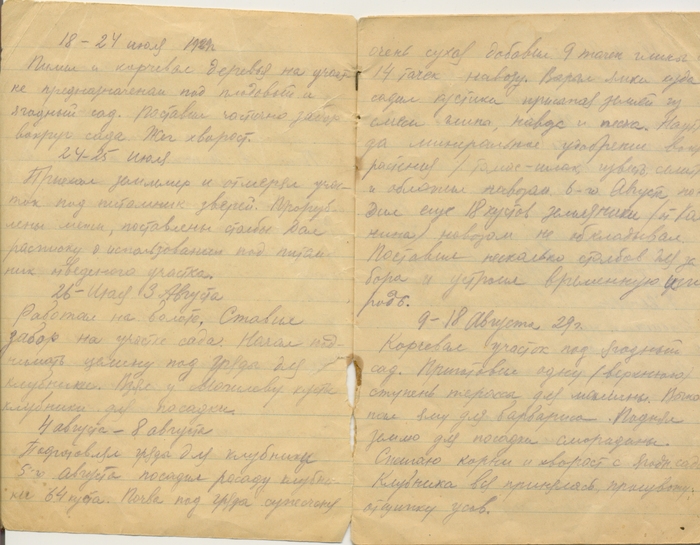 18 – 24 июля 1929г
Пилил и корчевал деревья на участ
не предназначенном под плодовый и
ягодный сад. Поставил частично забор
вокруг сада. Жег хворост.
24-25 июля
Приехал землемер и отмерял учас-
ток под питомник зверей. Проруб-
лены межи, поставлены столбы. Дал
расписку о использовании под питом
ник отведенного участка.
26-Июля 3 Августа
Работал на болоте. Ставил
забор на участке сада. Начал под-
нимать целину под гряды для
клубники. Взял у кусты
клубники для посадки.
4 августа – 8 августа
Подготовлял гряды для клубники
5го августа посадил рассаду клубни-
ки 64 куста. Почва под гряды
очень сухая добавил 9 тачек глины и
14 тачек навозу. Вырыл ямки куда
садил кустики присыпая землей из
смеси глины, навоз и песка.
да минеральное удобрение
растения / томас-шлак, известь,
и обложил навозом. 6-го Августа по
дил еще 18 кустов земляники (
) навозом не обкладывал.
Поставил несколько столбов для за
бора и устроил временную изго
родь.
9-18 Августа 29 г.
Корчевал участок под ягодный
сад. Приготовил одну (верхнюю)
ступень террасы для малины. Выко
пал яму для барбариса. Поднял
землю для посадки смородины.
Сжигаю корни и хворост с
Клубника вся принялась,
отщипку усов.